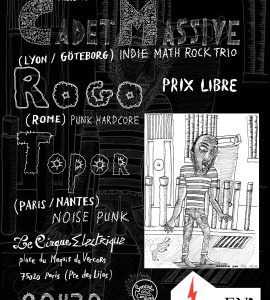 CADET MASSIVE
(LYON / GÖTEBORG) INDIE MATH ROCK TRIO
ROGO
PRIX LIBRE
(ROME) PUNK HARDCORE
TOPOR
(PARIS / NANTES)
NOISE PUNK
Le Cirque Electrique
place du Maquis du Vercors
75020 Paris (Pte des Lilas)
20H30